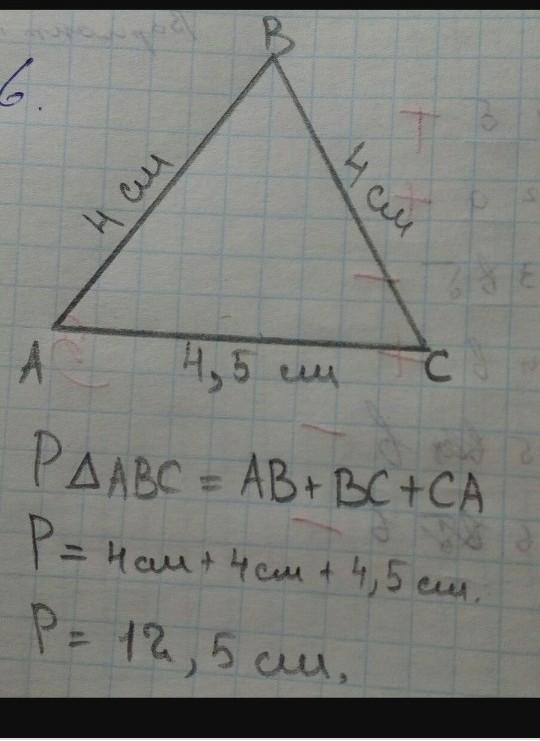 6.
B
4 см
4 см
A
4,5 см
C
P △ABC = AB + BC + CA
P = 4 см + 4 см + 4,5 см.
P = 12,5 см.